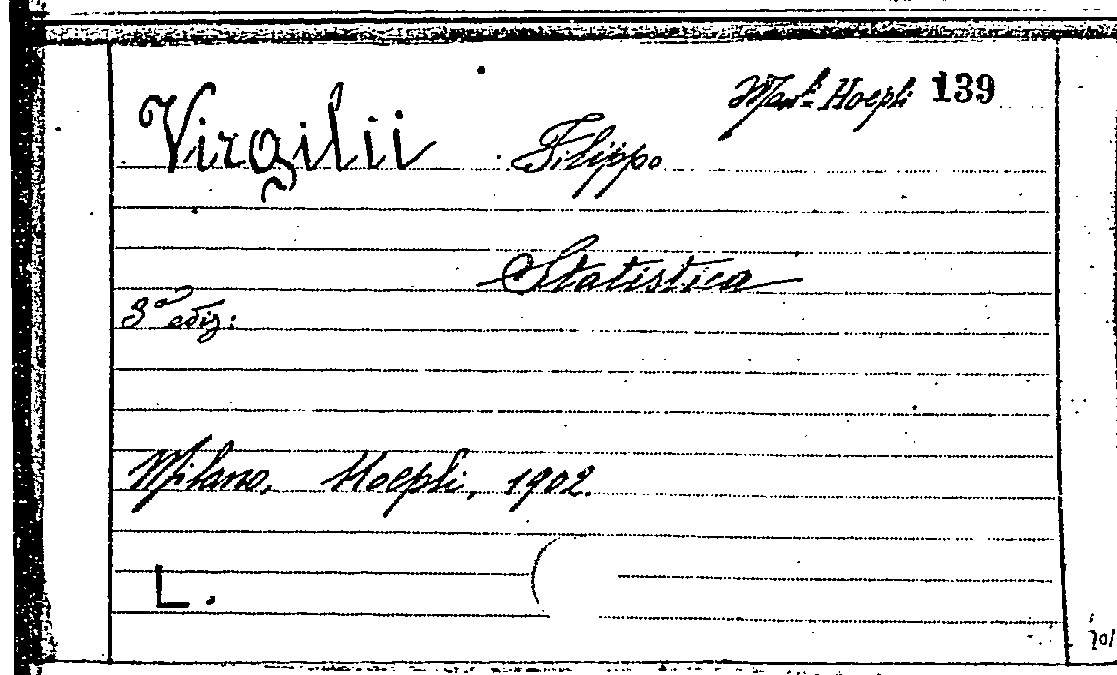 Man.li Hoepli 139
Virgilii Filippo
Statistica
3a ediz:
Milano, Hoepli, 1902.
L.